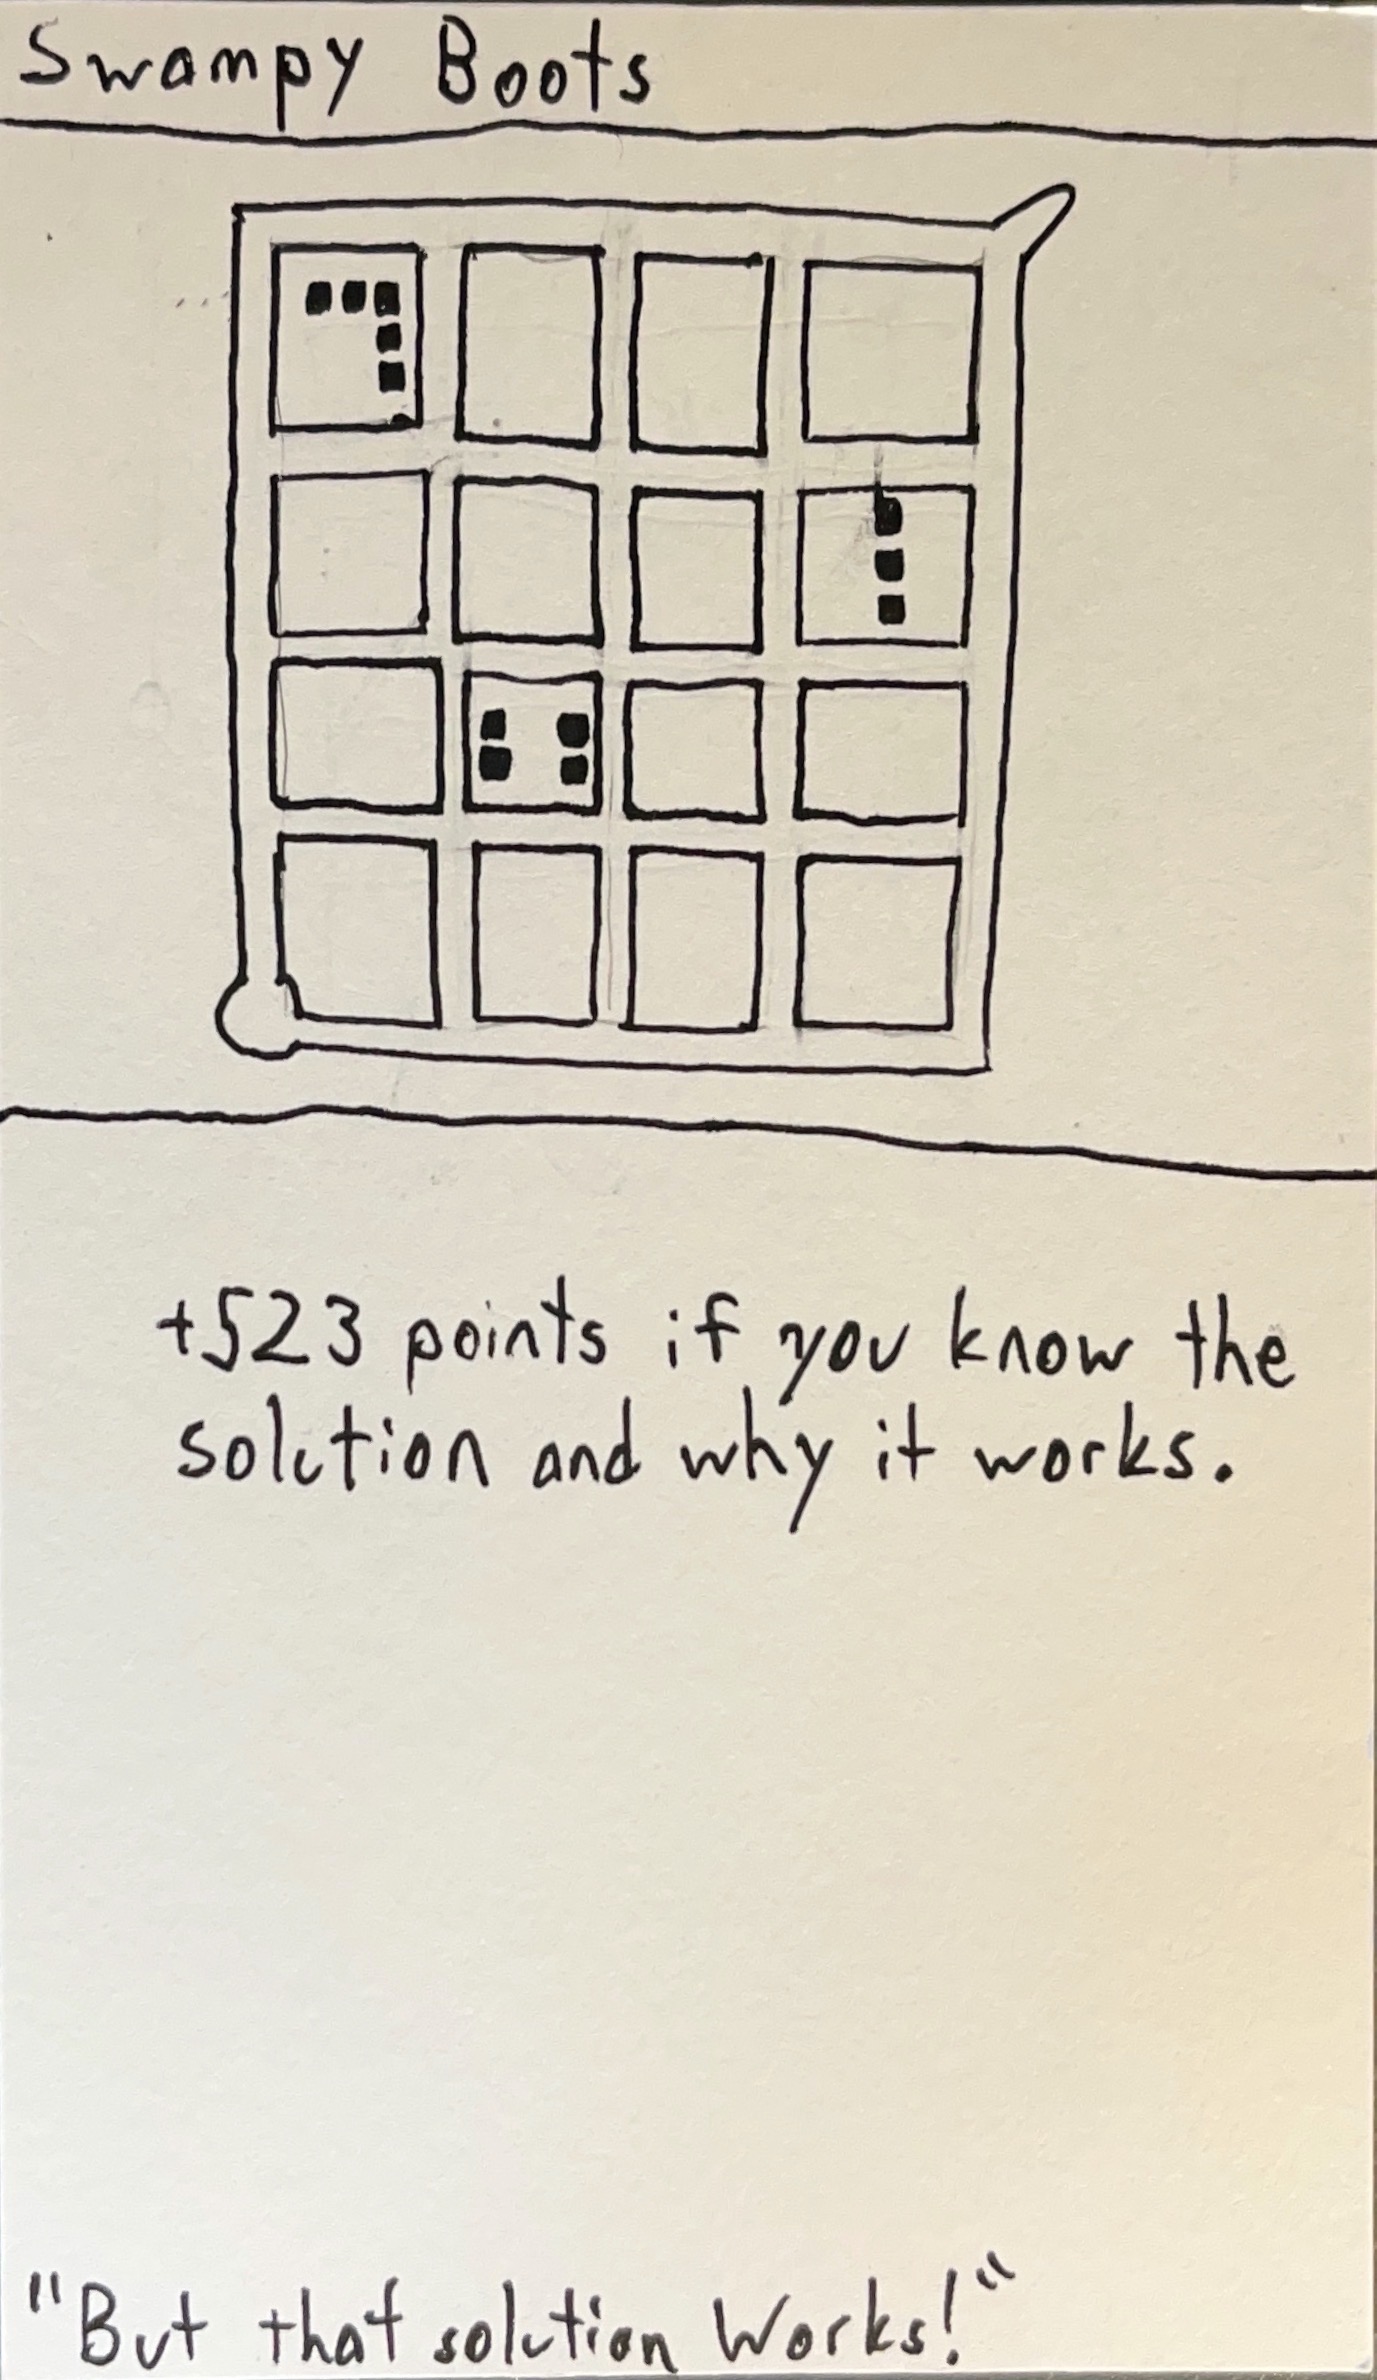 Swampy Boots
+523 points if you know the
solution and why it works.
"But that solution Works!"